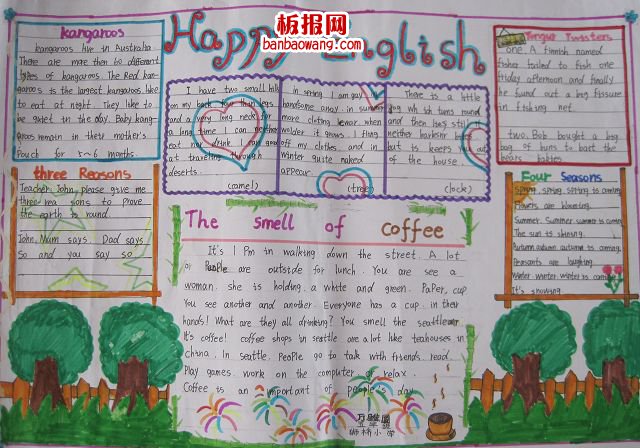 板报网
banbaowang.com
Happy English
kangaroos
kangaroos live in Australia.
There are more then 60 different
types of kangaroos. The Red kan-
garoos is the largest kangaroos. like
to eat at night. They like to
be quiet in the day. Baby kang-
aroos remain in their mother's
Pouch for 5~6 months.
I have two small hills
on my back four than legs
and a very long neck for
a long time I can neither
eat nor drink. I am good
at traveling through
deserts.
(camel)
In spring. I am gay
handsome array. in summer
more cloting I wear when
colder it grows. I fling
off my clothes. and in
winter quite naked
appear.
(tree)
There is a little
dog which turns round
and then has still
neither barking nor bites
but is keeps you out
of the house.
(lock)
Tongue Twisters
one. A finnish named
fisher failed to fish one
Friday afternoon and finally
he found out a big fissure
in fishing net.
two. Bob bought a big
bag of buns to bast the
bears babies
three Reasons
Teacher: John, please give me
three rea sons to prove
the earth is round.
John. Mum says. Dad says.
So and you say so.
Four Seasons
Spring. spring. spring is coming.
Flowers are blooming.
Summer. Summer. summer is coming
The sun is shining.
Autumn. autumn. autumn is coming.
Peasants are laughing.
Winter. winter. winter is coming
It's snowing.
The smell of coffee
It's 1 P.m in walking down the street. A lot
of People are outside for lunch. You are see a
woman. she is holding. a white and green. Paper, cup
You see another and another. Everyone has a cup. in their
hands! What are they all drinking? You smell the seattle air
It's coffee! coffee shops in seattle are a lot like teahouses in
China. In seattle. People go to talk with friends. read.
Play games. work on the computer. or relax.
Coffee is an important of people's day
五年级